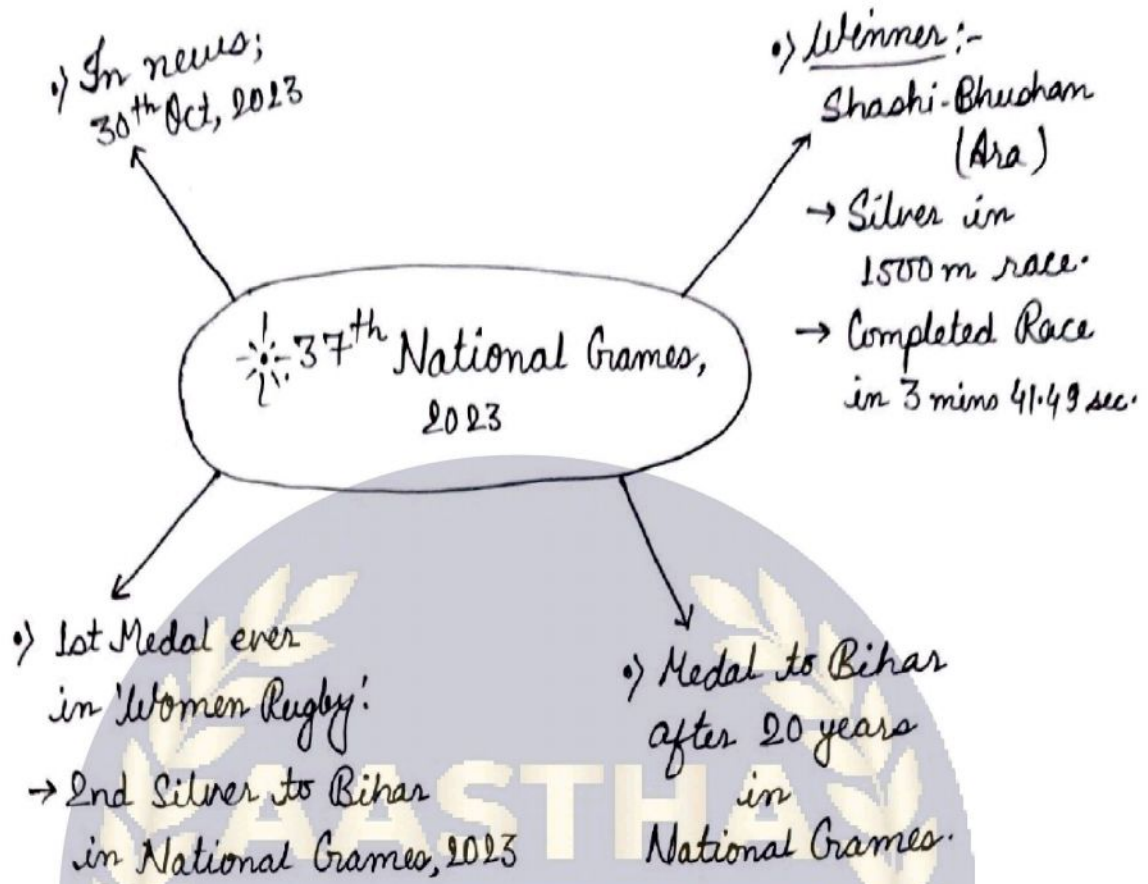 •) In news;
30th Oct, 2023
•) Winner :-
Shashi-Bhushan
(Ara)
→ Silver in
1500 m race.
→ Completed Race
in 3 mins 41.49 sec.
37th National Games,
2023
•) 1st Medal ever
in 'Women Rugby'.
→ 2nd Silver to Bihar
in National Games, 2023
•) Medal to Bihar
after 20 years
in
National Games.
AASTHA